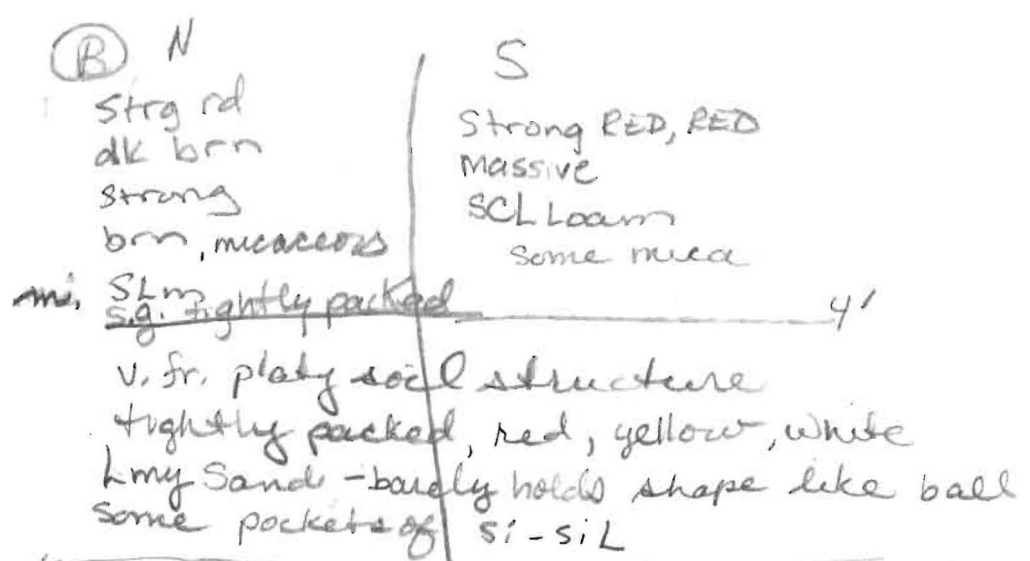 B N
Strg rd
dk brn
strong
brn, micaceous
SLm
s.g. tightly packed
S
Strong RED, RED
Massive
SCL Loam
Some mica
4'
v. fr. platy soil structure
tightly packed, red, yellow, white
Lmy Sand - barely holds shape like ball
Some pockets of si - siL